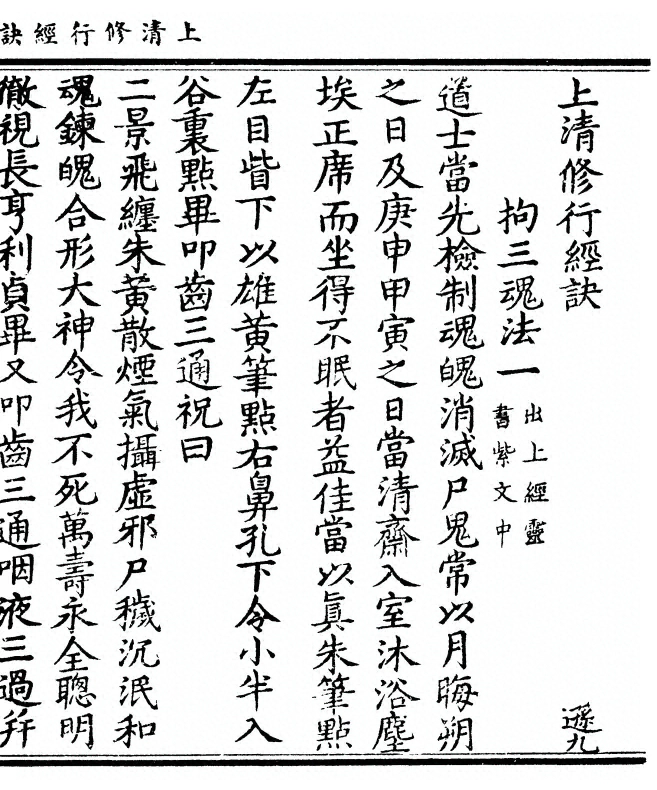 上清修行經訣
上清修行經訣
遜九
拘三魂法一
出上經靈
書紫文中
道士當先檢制魂魄消滅尸鬼常以月晦朔
之日及庚申甲寅之日當清齋入室沐浴塵
埃正席而坐得不眠者益佳當以真朱筆點
左目眥下以雄黃筆點右鼻孔下令小半入
谷裏點畢叩齒三通祝曰
二景飛纏朱黃散煙氣攝虛邪尸穢沉泯和
魂鍊魄合形大神令我不死萬壽永全聰明
徹視長亨利貞畢又叩齒三通咽液三過幷